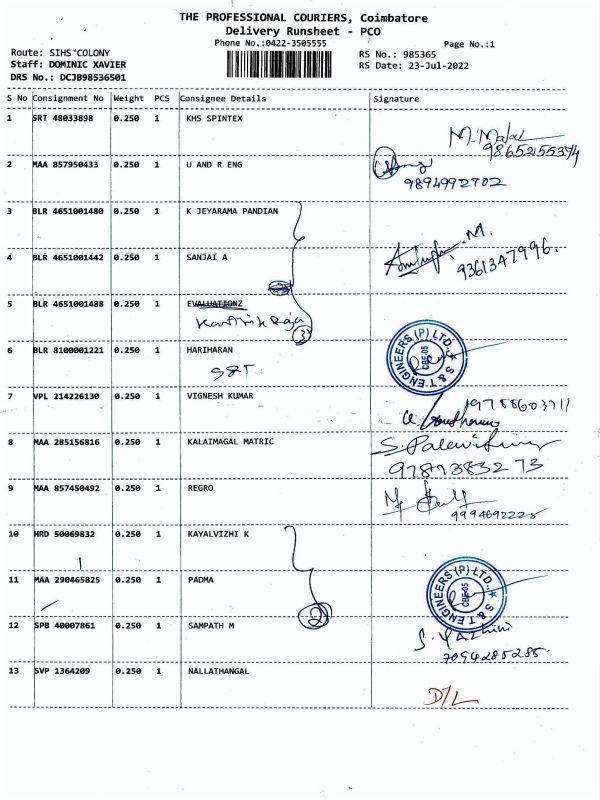 THE PROFESSIONAL COURIERS, Coimbatore
Delivery Runsheet - PCO
Phone No.:0422-3505555
Page No.:1
Route: SIHS COLONY
RS No.: 985365
Staff: DOMINIC XAVIER
RS Date: 23-Jul-2022
DRS No.: DCJB98536501
S No Consignment No Weight PCS Consignee Details Signature
1 SRT 48033898 0.250 1 KHS SPINTEX
9865255374
2 MAA 857950433 0.250 1 U AND R ENG
9894992702
3 BLR 4651001480 0.250 1 K JEYARAMA PANDIAN
4 BLR 4651001442 0.250 1 SANJAI A
9361347996.
5 BLR 4651001488 0.250 1 EVALUATIONZ
Karthik Raja
3
6 BLR 8100001221 0.250 1 HARIHARAN
S&T
S & T ENGINEERS (P) LTD. CBE-05
7 VPL 214226130 0.250 1 VIGNESH KUMAR
8 MAA 285156816 0.250 1 KALAIMAGAL MATRIC
9 MAA 857450492 0.250 1 REGRO
9994692225
10 HRD 50069832 0.250 1 KAYALVIZHI K
11 MAA 290465825 0.250 1 PADMA
2
S & T ENGINEERS (P) LTD. CBE-05
12 SPB 40007861 0.250 1 SAMPATH M
7094285285.
13 SVP 1364209 0.250 1 NALLATHANGAL
D/L